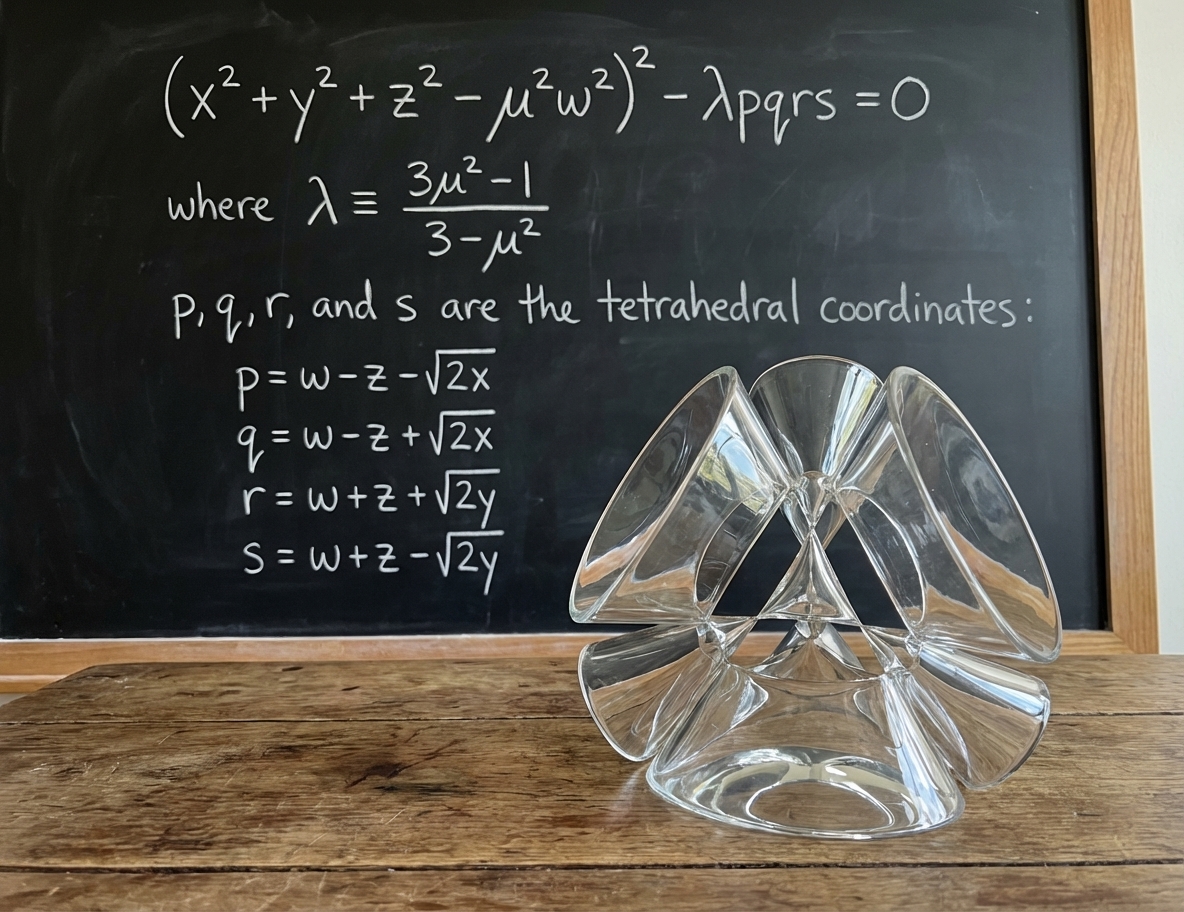 (x² + y² + z² − μ²w²)² − λpqrs = 0
where λ ≡ (3μ² − 1)/(3 − μ²)
p, q, r, and s are the tetrahedral coordinates:
p = w − z − √(2x)
q = w − z + √(2x)
r = w + z + √(2y)
s = w + z − √(2y)